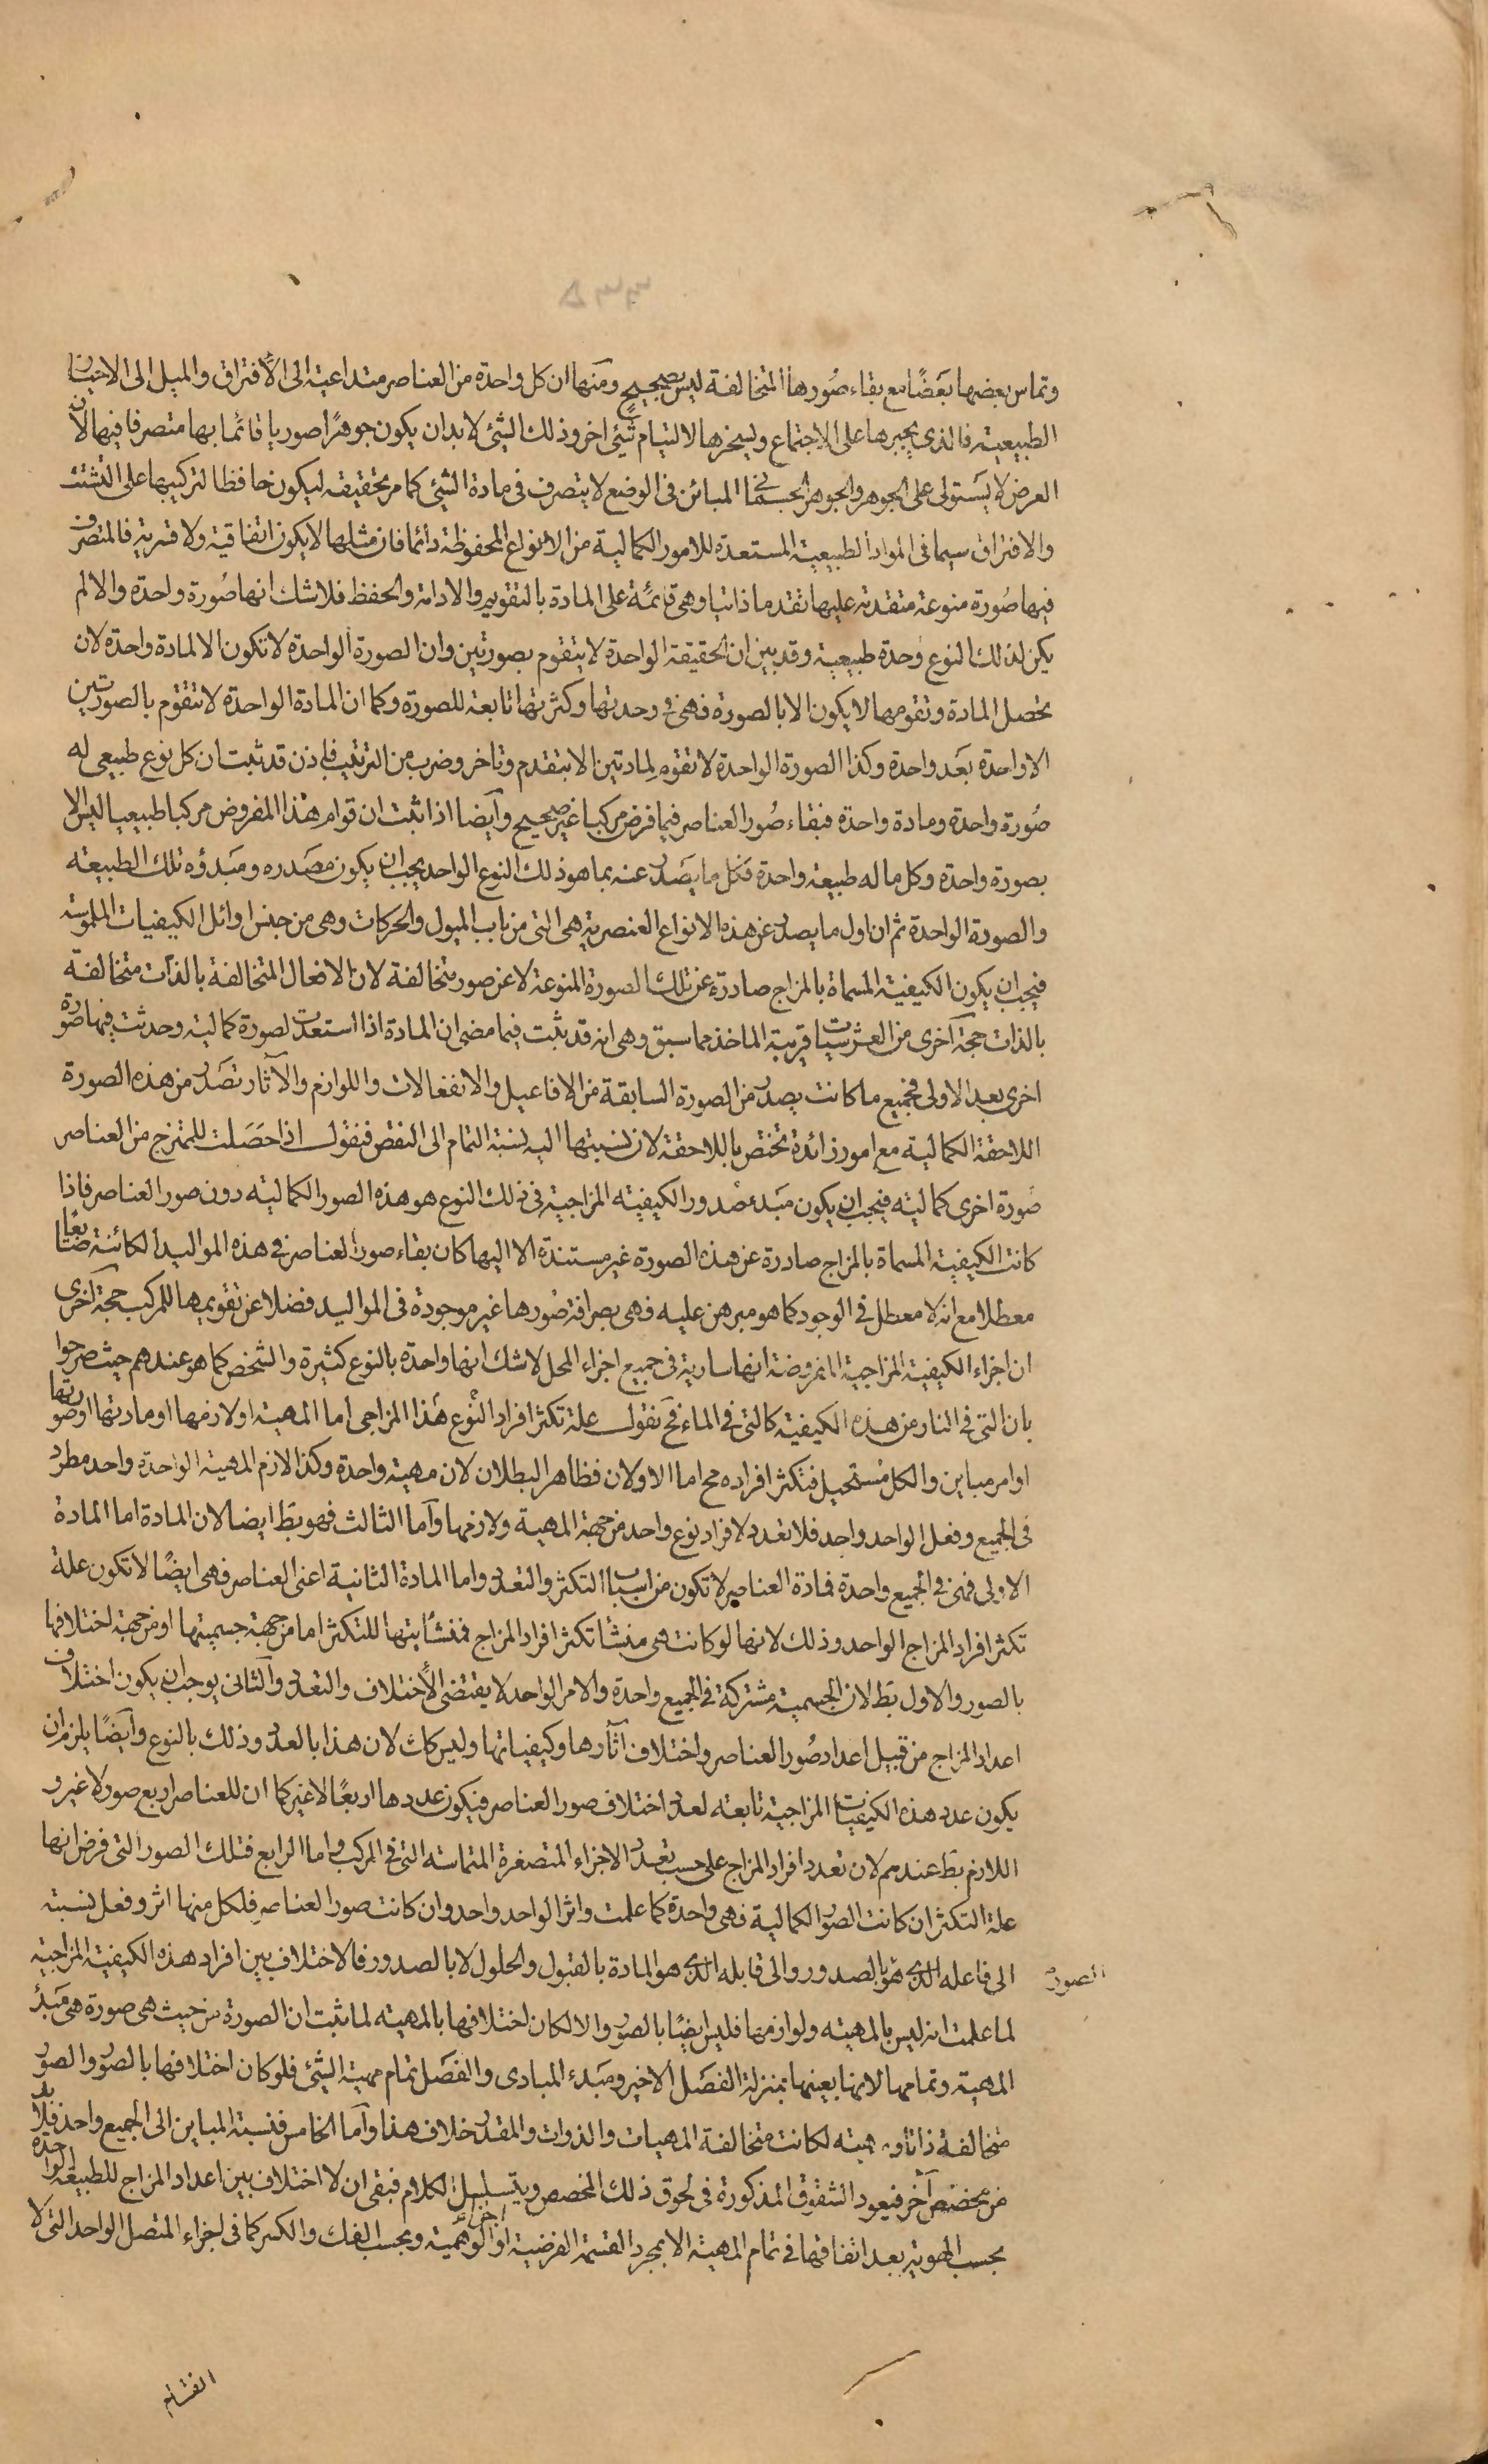 وتماس بعضها بعضًا مع بقاء صُورها المتخالفة ليس بصحيح ومنها ان كل واحدة من العناصر متداعية الى الأفتراق والميل الى الاحياز
الطبيعية فالذى يجبرها على الاجتماع ويسخرها لالتيام شئ اخر وذلك الشئ لا بد ان يكون جوهرًا صوريا قائمًا بها متصرفا فيها لان
العرض لا يستولى على الجوهر والجوهر الجسمانى المبائن فى الوضع لا يتصرف فى مادة الشئ كما مر تحقيقه ليكون حافظا لتركيبها على التشتت
والافتراق سيما فى المواد الطبيعية المستعدة للامور الكمالية من الانواع المحفوظة دائما فان مثلها لا يكون اتفاقية ولا قسرية فالمتصرف
فيها صُورة منوعة متقدمة عليها تقدما ذاتيا وهى قائمة على المادة بالتقويم والادامة والحفظ فلا شك انها صُورة واحدة والا لم
يكن لذلك النوع وحدة طبيعية وقد بين ان الحقيقة الواحدة لا يتقوم بصورتين وان الصورة الواحدة لا تكون الا لمادة واحدة لان
تحصل المادة وتقومها لا يكون الا بالصورة فهى فى وحدتها وكثرتها تابعة للصورة وكما ان المادة الواحدة لا تتقوم بالصورتين
الا واحدة بعد واحدة وكذا الصورة الواحدة لا تقوم لمادتين الا بتقدم وتاخر وضرب من الترتيب فاذن قد ثبت ان كل نوع طبيعى له
صُورة واحدة ومادة واحدة فبقاء صُور العناصر فيما فرض مركبا غير صحيح وأيضا اذا ثبت ان قوام هذا المفروض مركبا طبيعيا ليس الا
بصورة واحدة وكل ما له طبيعة واحدة فكل ما يصدر عنه بما هو ذلك النوع الواحد يجب ان يكون مصدره ومبدؤه تلك الطبيعة
والصورة الواحدة ثم ان اول ما يصدر عن هذه الانواع العنصرية هى التى من باب الميول والحركات وهى من جنس اوائل الكيفيات الملموسة
فيجب ان يكون الكيفية المسماة بالمزاج صادرة عن تلك الصورة المنوعة لا عن صور متخالفة لان الافعال المتخالفة بالذات متخالفة
بالذات حجة آخرى من العرشيات قريبة الماخذ مما سبق وهى انه قد ثبت فيما مضى ان المادة اذا استعدت لصورة كمالية وحدثت فيها صورة
اخرى بعد الاولى فجميع ما كانت يصدر من الصورة السابقة من الافاعيل والانفعالات واللوازم والآثار تصدر من هذه الصورة
اللاحقة الكمالية مع امور زائدة تختص باللاحقة لان نسبتها اليه نسبة التمام الى النقص فنقول اذا حصلت للممتزج من العناصر
صُورة اخرى كمالية فيجب ان يكون مبدء صُدور الكيفية المزاجية فى ذلك النوع هو هذه الصور الكمالية دون صور العناصر فاذا
كانت الكيفية المسماة بالمزاج صادرة عن هذه الصورة غير مستندة الا اليها كان بقاء صور العناصر فى هذه المواليد الكائنة ضائعًا
معطلا مع انه لا معطل فى الوجود كما هو مبرهن عليه فهى بصرافة صُورها غير موجودة فى المواليد فضلا عن تقويمها للمركب حجة آخرى
ان اجزاء الكيفية المزاجية المفروضة انها سارية فى جميع اجزاء المحل لا شك انها واحدة بالنوع كثيرة والشخص كما هو عندهم حيث صرحوا
بان التى فى النار من هذه الكيفية كالتى فى الماء فح نقول علة تكثر افراد النوع هذا المزاجى أما المهية او لازمها او مادتها او صورتها
او امر مباين والكل مستحيل فتكثر افراده مح اما الاولان فظاهر البطلان لان مهية واحدة وكذا لازم المهية الواحدة واحد مطرد
فى الجميع وفعل الواحد واحد فلا تعدد لافراد نوع واحد من جهة المهية ولازمها وأما الثالث فهو بط ايضا لان المادة اما المادة
الاولى فهى فى الجميع واحدة فمادة العناصر لا تكون من اسباب التكثر والتعدد واما المادة الثانية اعنى العناصر فهى ايضًا لا تكون علة
تكثر افراد المزاج الواحد وذلك لانها لو كانت هى منشأ تكثر افراد المزاج فمنشأيتها للتكثر اما من جهة جسميتها او من جهة اختلافها
بالصور والاول بط لان الجسمية مشتركة فى الجميع واحدة والامر الواحد لا يقتضى الأختلاف والتعدد والثانى يوجب ان يكون اختلاف
اعداد المزاج من قبيل اعداد صُور العناصر واختلاف آثارها وكيفياتها وليس كك لان هذا بالعدد وذلك بالنوع وايضًا يلزم ان
يكون عدد هذه الكيفيات المزاجية تابعة لعدد اختلاف صور العناصر فيكون عددها اربعًا لا غير كما ان للعناصر اربع صور لا غير و
اللازم بط عندهم لان تعدد افراد المزاج على حسب تعدد الاجزاء المتصغرة المتماسة التى فى المركب واما الرابع فتلك الصور التى فرض انها
علة التكثر ان كانت الصور الكمالية فهى واحدة كما علمت واثر الواحد واحد وان كانت صور العناصر فلكل منها اثر وفعل نسبته
الى فاعله الذى هو بالصدور والى قابله الذى هو المادة بالقبول والحلول لا بالصدور فالاختلاف بين افراد هذه الكيفية المزاجية
الصور
لما علمت انه ليس بالمهية ولوازمها فليس ايضًا بالصور والا لكان اختلافها بالمهية لما ثبت ان الصورة من حيث هى صورة هى مبدأ
المهية وتمامها لانها بعينها بمنزلة الفصل الاخير ومبدء المبادى والفصل تمام مهية الشئ فلو كان اختلافها بالصور والصور
متخالفة ذاتا ومهية لكانت متخالفة المهيات والذوات والمقدر خلاف هذا وأما الخامس فنسبة المباين الى الجميع واحد فلا بد
من مخصص آخر فيعود الشقوق المذكورة فى لحوق ذلك المخصص ويتسلسل الكلام فبقى ان لا اختلاف بين اعداد المزاج للطبيعة الواحدة
بحسب الهوية بعد اتفاقها فى تمام المهية الا بمجرد القسمة الفرضية او الوهمية وبحسب الفك والكسر كما فى اجزاء المتصل الواحد التى لا